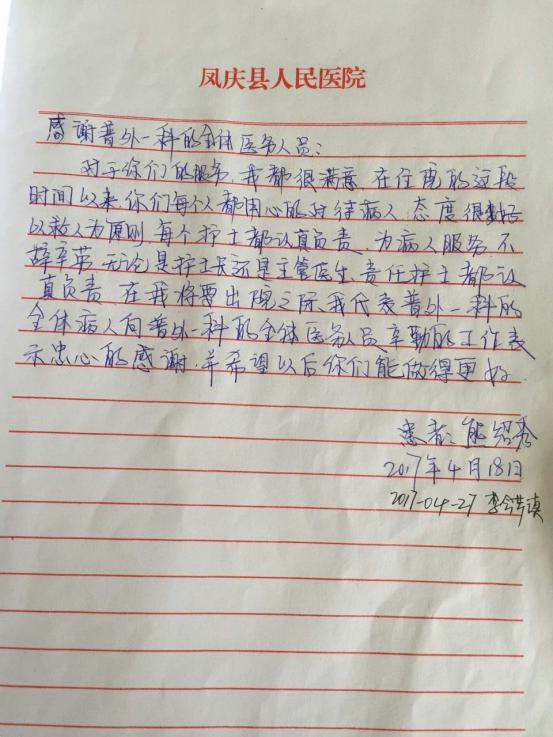 凤庆县人民医院
感谢普外一科的全体医务人员：
对于你们的服务，我都很满意，在住院的这段
时间以来你们每个人都用心的对待病人，态度很
以救人为原则，每个护士都认真负责，为病人服务，不
辞辛苦，无论是护士长还是主管医生，责任护士都认
真负责，在我将要出院之际，我代表普外一科的
全体病人向普外一科的全体医务人员辛勤的工作表
示忠心的感谢，并希望以后你们能做得更好
患者：熊绍秀
2017年4月18日
2017-04-27 李